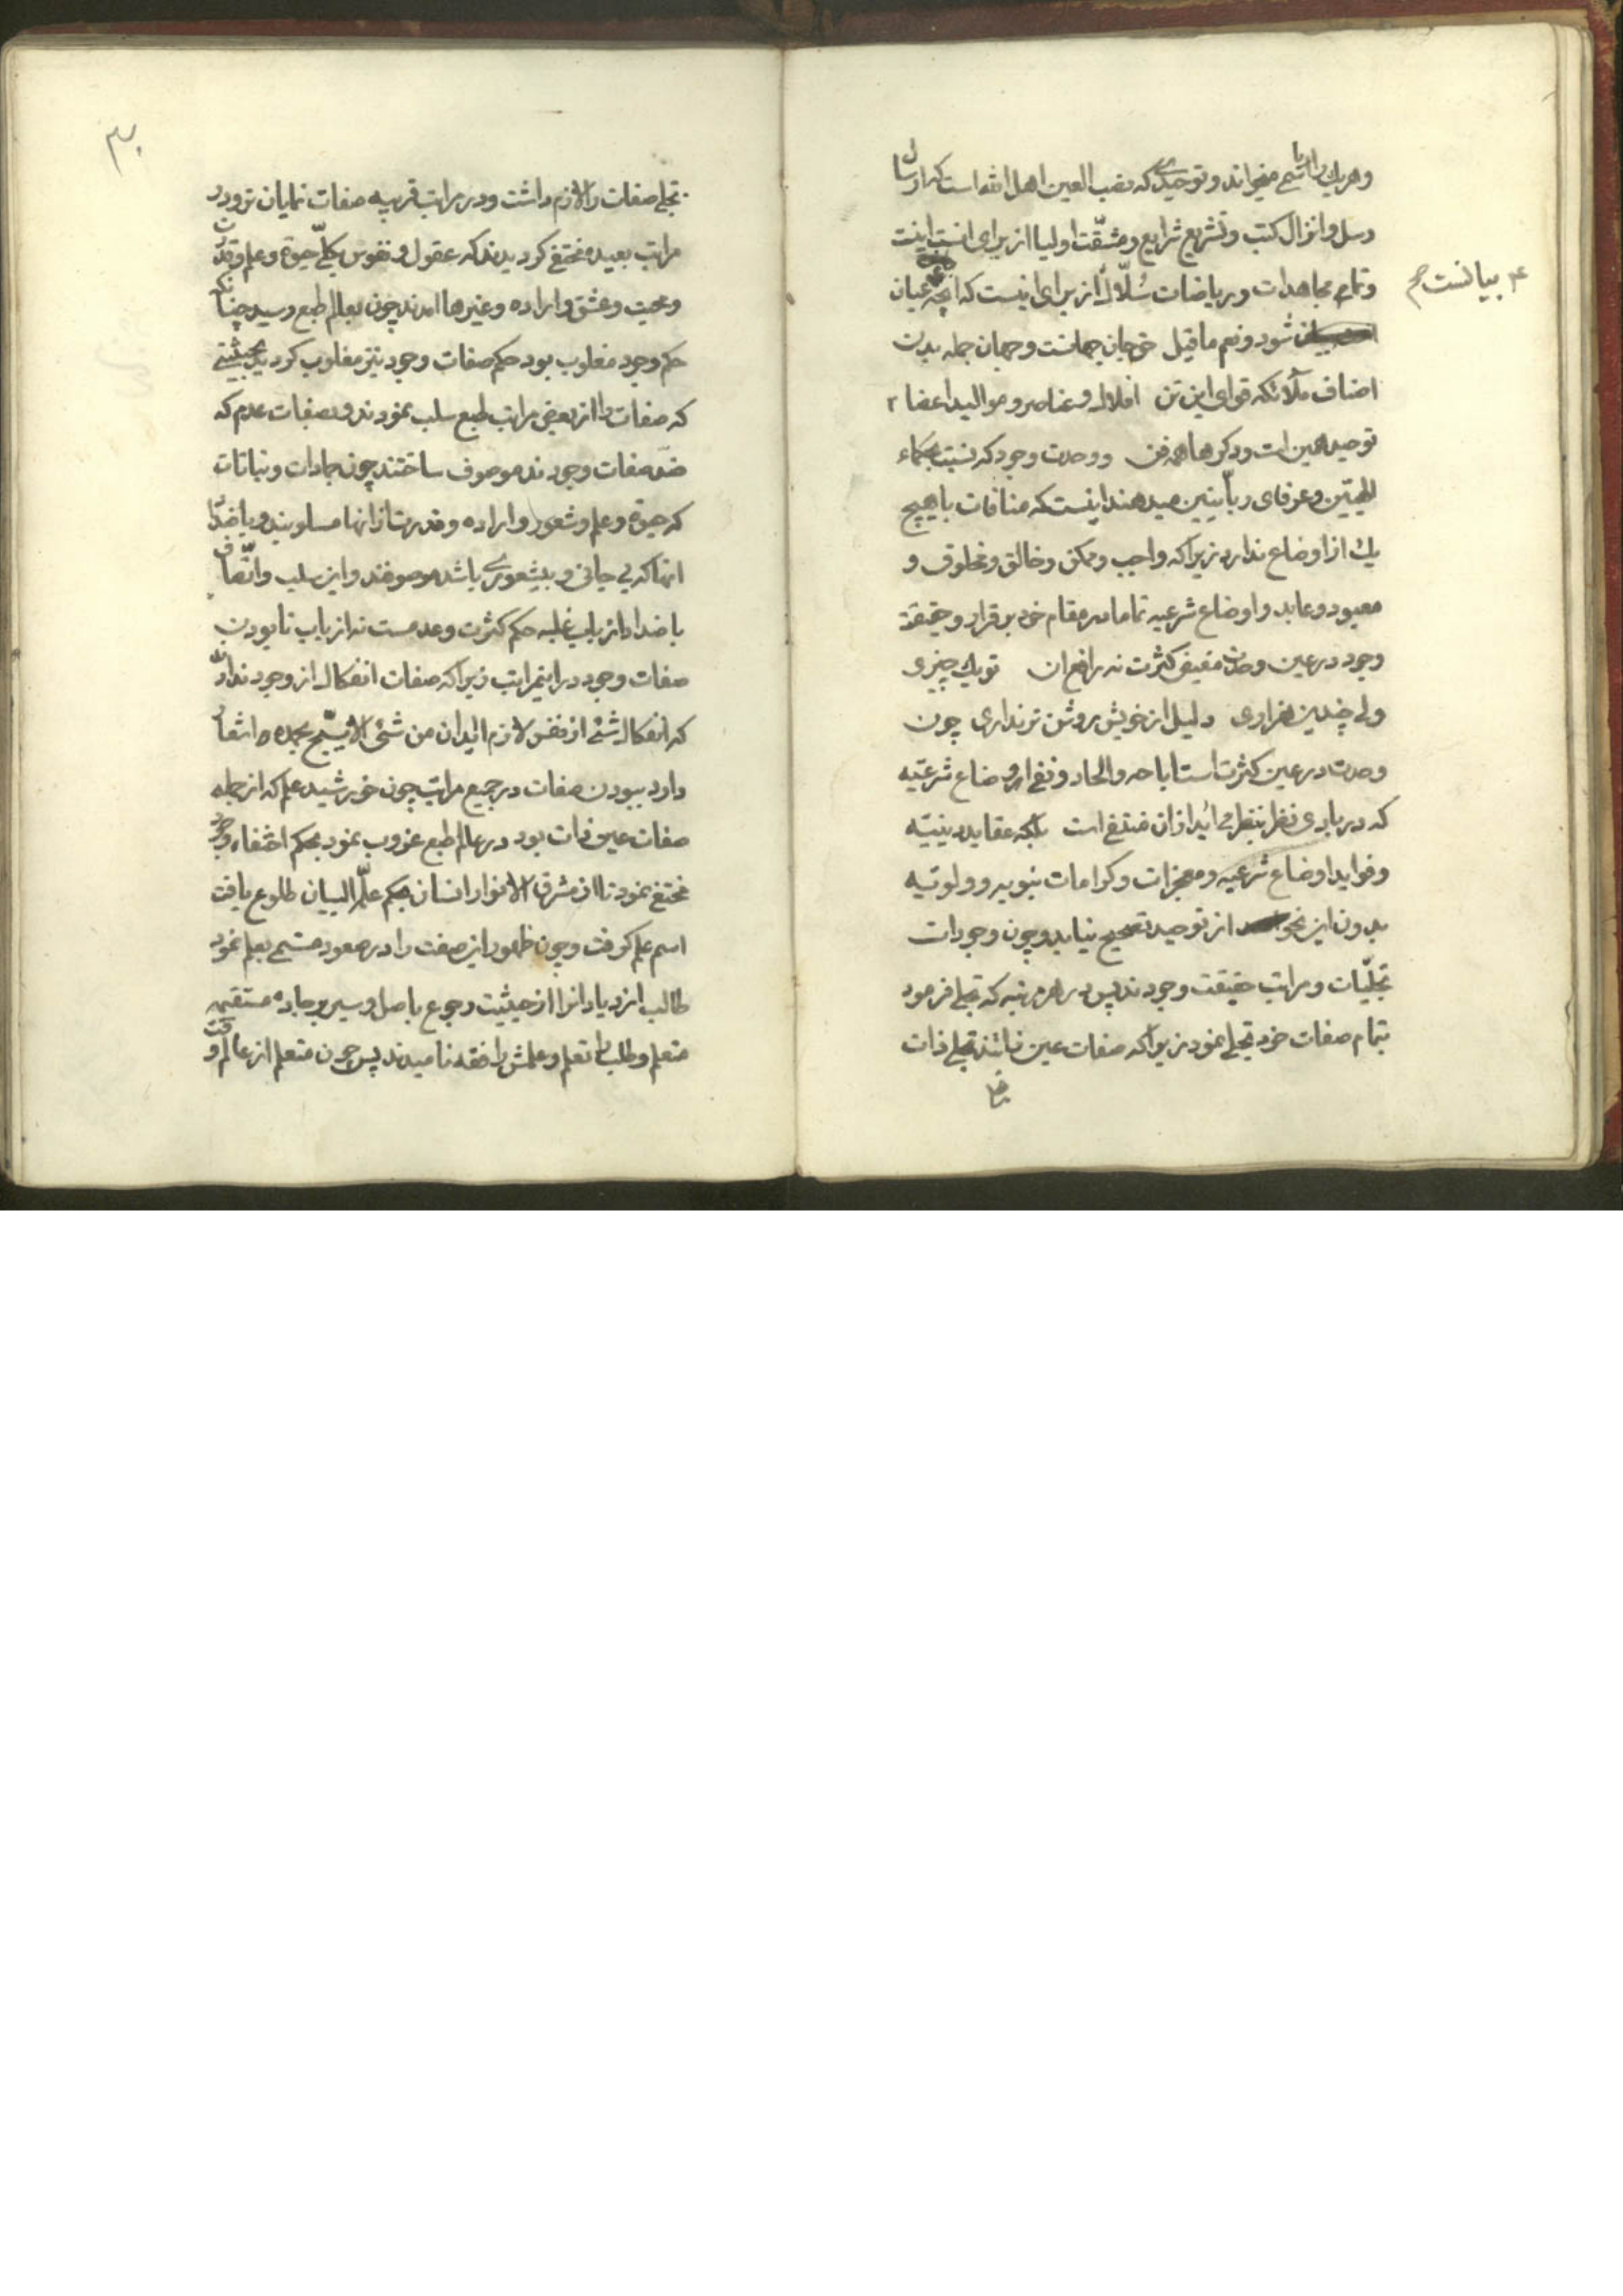 وهریك را باسمے میخواند و توحیدیكه نصب العین اهل الله است كه ارسال
رسل و انزال كتب و تشریع شرایع و مشقّت اولیا از برای انست اینست
و تمام مجاهدات و ریاضات سُلّاك از برای اینست كه انچه بیانست عیان
شود و نعم ما قیل حق جان جهانست و جهان جمله بدن
اصناف ملائكه قوای این تن افلاك و عناصر و موالید اعضا
توحید همین است و دكرها همه فن و وحدت وجود كه نسبت بحكماء
الهیّین و عرفای ربانیین میدهند اینست كه منافات با هیچ
یك از اوضاع ندارد زیراكه واجب و ممكن و خالق و مخلوق و
معبود و عابد و اوضاع شرعیه تماما در مقام خود برقرار و حقیقة
وجود در عین وحدت مفیض كثرت نه رافع ان تو یك چیزی
ولے چندین هزاری دلیل از خویش روشن تر نداری چون
وحدت در عین كثرت است اباحه و الحاد و نفے اوضاع شرعیّه
كه در بادی نظر بنظر می اید ازان منتفے است بلكه عقاید دینیّه
و فواید اوضاع شرعیه و معجزات و كرامات نبویه و ولویّیه
بدون این نحو از توحید تصحیح نیابد و چون وجودات
تجلّیات و مراتب حقیقت وجودند پس در هر مرتبه كه تجلے فرمود
بتمام صفات خود تجلے نمود زیراكه صفات عین ذاتند تجلے ذات
بیانست صح
۳۰
تجلے صفات را لازم داشت و در مراتب قریبه صفات نمایان تر و در
مراتب بعیده مختفے كردیدند كه عقول و نفوس كلّے حیوة و علم و قدرت
و محبت و عشق و اراده و غیرها امدند چون بعالم طبع رسید چنانكه
حكم وجود مغلوب بود حكم صفات وجود نیز مغلوب كردید بحیثیتے
كه صفات را از بعضی مراتب طبع سلب نمودند و بصفات عدم كه
ضد صفات وجودند موصوف ساختند چون جمادات و نباتات
كه حیوة و علم و شعور و اراده و قدرت از انها مسلوبند و باضداد
انها كه بی جانی و بیشعوری باشد موصوفند و این سلب و اتّصاف
باضداد از باب غلبه حكم كثرت و عدمست نه از باب نابودن
صفات وجود در اینمراتب زیراكه صفات انفكاك از وجود ندارد
كه انفكاك شئے از نفس لازم اید ان من شئ الا یسبّح بحمده اشعار
دارد ببودن صفات در جمیع مراتب چون خورشید علم كه از جمله
صفات عین ذات بود در عالم طبع غروب نمود بحكم اختفاء وجود
مختفے نمود تا از مشرق الانوار انسان بحكم علّم البیان طلوع یافت
اسم علم كرفت و چون ظهور این صفت را در صعود مسمے بعلم نمود
طالب ازدیاد انرا از حیثیت رجوع باصل و سیر بر جاده مستقیمه
متعلم و طلب را تعلم و علمش را فقه نامیدند پس چون متعلم از عالم